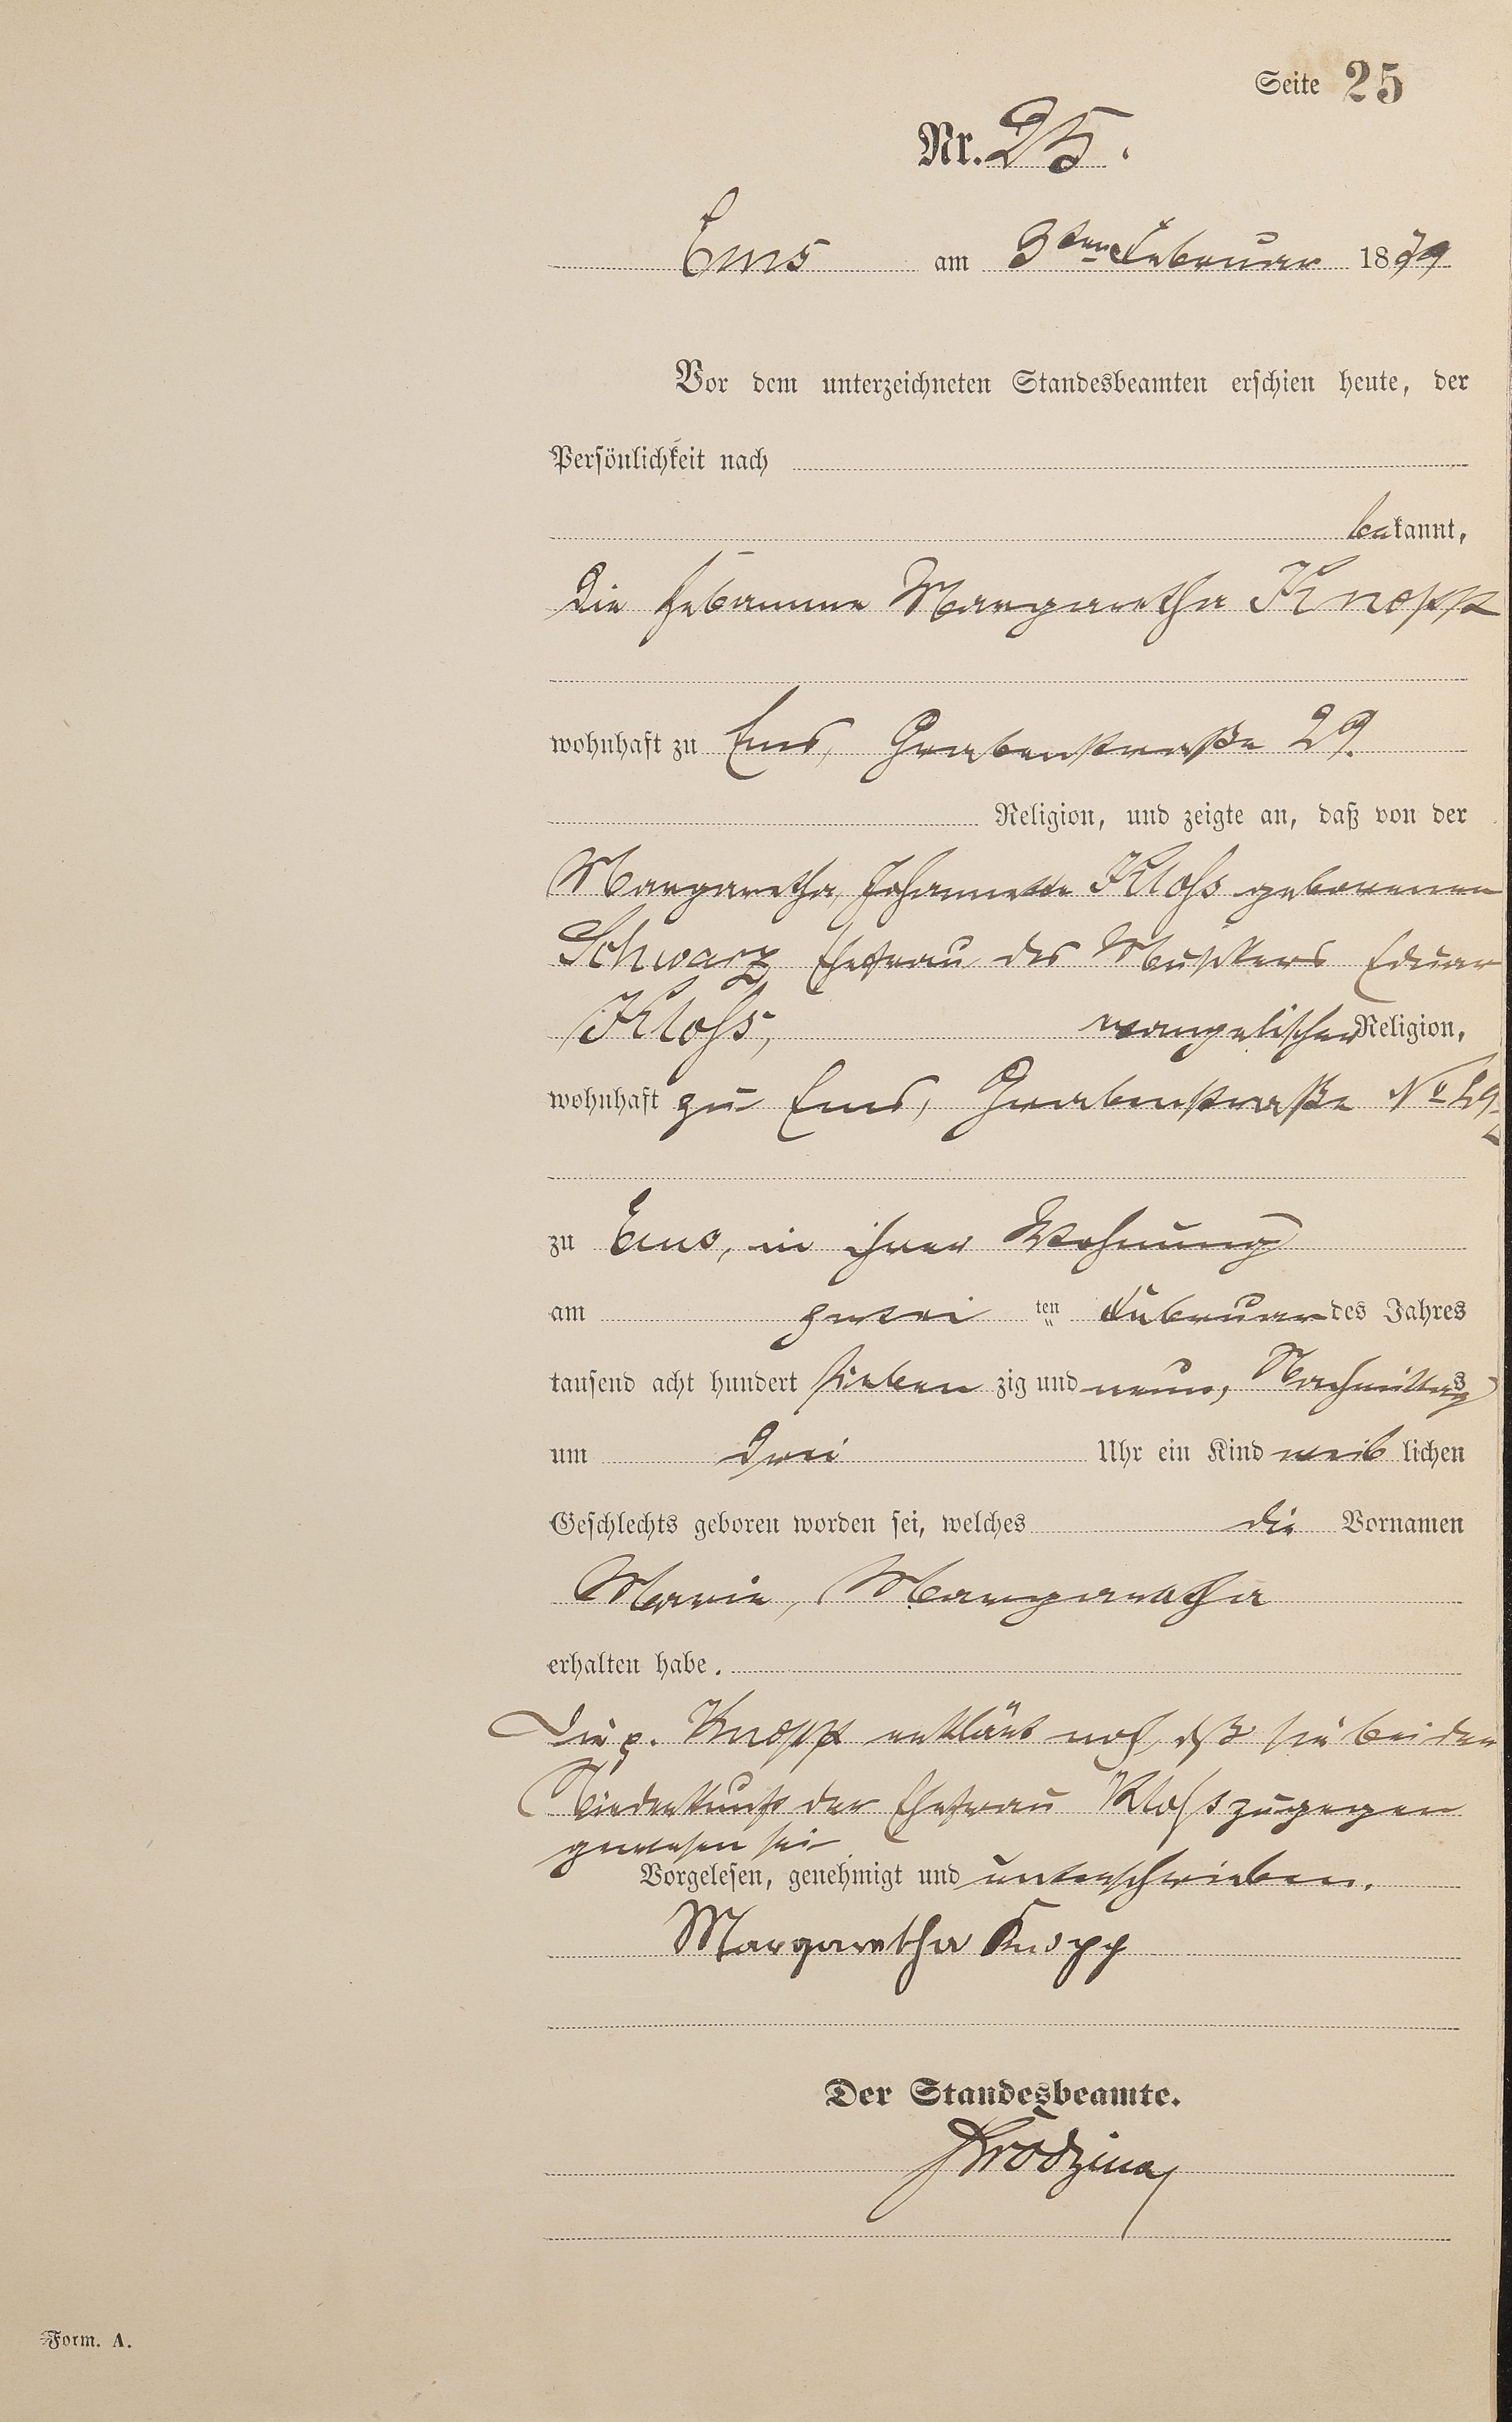 Seite 25
Nr. 25.
Ems am 3ten Februar 1879
Vor dem unterzeichneten Standesbeamten erschien heute, der
Persönlichkeit nach
bekannt,
die Hebamme Margaretha Knopp
wohnhaft zu Ems, Grabenstraße 29.
Religion, und zeigte an, daß von der
Margaretha Johannette Kloss geborenen
Schwarz Ehefrau des Musikers Eduar
Kloss, evangelischer Religion,
wohnhaft zu Ems, Grabenstraße No
zu Ems, in ihrer Wohnung
am zwei ten Februar des Jahres
tausend acht hundert sieben zig und neun, Nachmittags
um drei Uhr ein Kind weib lichen
Geschlechts geboren worden sei, welches die Vornamen
Marie, Margaretha
erhalten habe.
Die p. Knopp erklärt noch, dß sie bei der
Niederkunft der Ehefrau Kloss zugegen
gewesen sei
Vorgelesen, genehmigt und unterschrieben.
Margaretha Knopp
Der Standesbeamte.
Form. A.